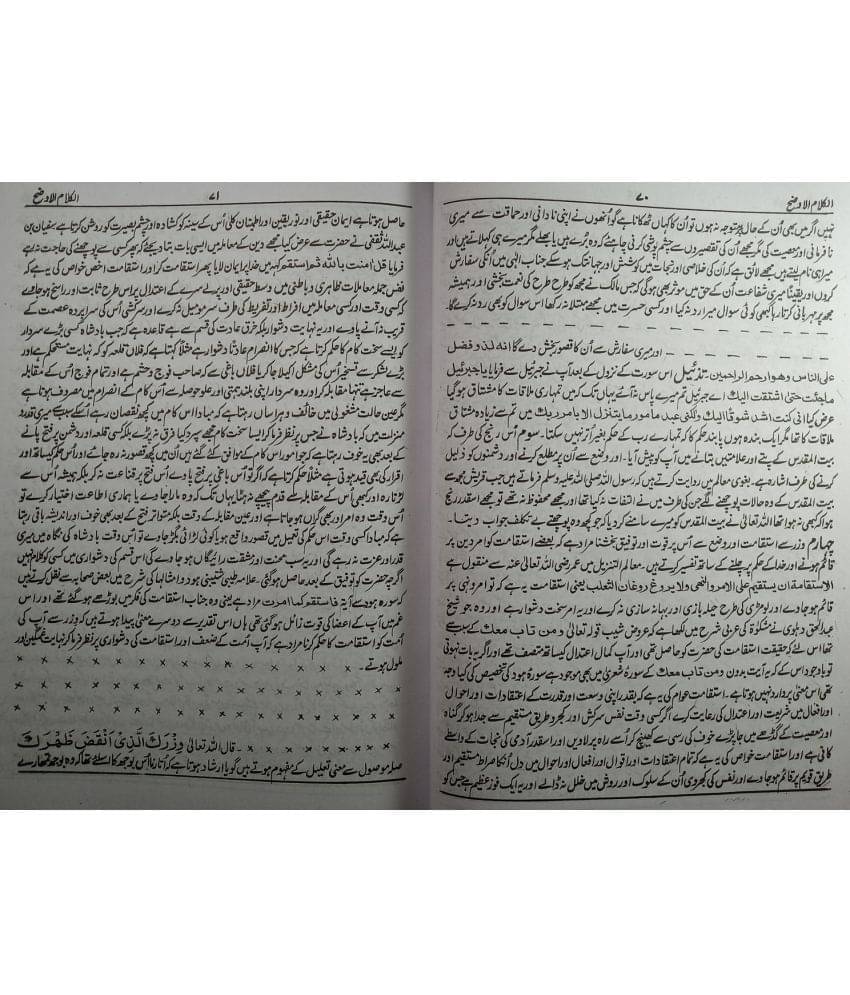 ۷۰
الکلام الاوضح
نہیں اگر میں بھی اُن کے حال پر متوجہ نہ ہوں تو اُن کا کہاں ٹھکانا ہے گو اُنھوں نے اپنی نادانی اور حماقت سے میری
نافرمانی اور معصیت کی مگر مجھے اُن کی تقصیروں سے چشم پوشی کرنی چاہئے کہ وہ بُرے ہیں یا بھلے مگر میرے ہی کہلاتے ہیں اور
میرا ہی نام لیتے ہیں مجھے لائق ہے کہ اُن کی خلاصی اور نجات میں کوشش اور جہاں تک ہو سکے جناب الٰہی میں اُنکی سفارش
کروں اور یقیناً میری شفاعت اُن کے حق میں موثر بھی ہوگی کہ جس مالک نے مجھ کو طرح طرح کی نعمت بخشی اور ہمیشہ
مجھ پر مہربانی کرتا رہا کبھی کوئی سوال میرا رد نہ کیا اور کسی حسرت میں مجھے مبتلا نہ رکھا اس سوال کو بھی رد نہ کرے گا۔
اور میری سفارش سے اُن کا قصور بخش دے گا انہ لذو فضل
علی الناس وھو ارحم الراحمین۔ تذئیل اس سورت کے نزول کے بعد آپ نے جبرئیل سے فرمایا یا جبرئیل
ماجئت حتی اشتقت الیک اے جبرئیل تم میرے پاس نہ آئے یہاں تک کہ میں تمہاری ملاقات کا مشتاق ہو گیا
عرض کیا انی کنت اشد شوقا الیک ولکنی عبد مامور وما یتنزل الا بامر ربک میں تم سے زیادہ مشتاق
ملاقات کا تھا مگر ایک بندہ ہوں پابند حکم کا کہ تمہارے رب کے حکم بغیر اُتر نہیں سکتا۔ سوم اُس رنج کی طرف کہ
بیت المقدس کے پتے اور علامتیں بتانے میں آپ کو پیش آیا۔ اور وضع سے اُن پر مطلع کرنے اور دشمنوں کو ذلیل
کرنے کی طرف اشارہ ہے۔ بغوی معالم میں روایت کرتے ہیں کہ رسول اللہ صلی اللہ علیہ وسلم فرماتے ہیں جب قریش مجھ سے
بیت المقدس کے وہ حالات پوچھنے لگے جن کی طرف میں نے التفات نہ کیا تھا اور مجھے محفوظ نہ تھے تو مجھے اسقدر رنج
ہوا کہ کبھی نہ ہوا تھا اللہ تعالیٰ نے بیت المقدس کو میرے سامنے کر دیا کہ جو کچھ وہ پوچھتے بے تکلف جواب دیتا۔
چہارم وزر سے استقامت اور وضع سے اُس پر قوت اور توفیق بخشنا مراد ہے کہ بعضے استقامت کو امر دین پر
قائم ہونے اور خدا کے حکم پر چلنے کے ساتھ تفسیر کرتے ہیں۔ معالم التنزیل میں عمر رضی اللہ تعالیٰ عنہ سے منقول ہے
الاستقامۃ ان یستقیم علی الامر والنھی ولا یروغ روغان الثعلب یعنی استقامت یہ ہے کہ تو امر و نہی پر
قائم ہو جاوے اور لومڑی کی طرح حیلہ بازی اور بہانہ سازی نہ کرے اور یہ امر سخت دشوار ہے اور وہ جو شیخ
عبد الحق دہلوی نے مشکوٰۃ کی عربی شرح میں لکھا ہے کہ عروض شیب قولہ تعالیٰ ومن تاب معک کے سبب سے
تھا اس لئے کہ حقیقت استقامت کی حضرت کو حاصل تھی اور آپ کمال اعتدال کیساتھ متصف تھے اور اگر یہ بات نہوتی
تو باوجود اس کے کہ یہ آیت بدون ومن تاب معک کے سورۂ شعریٰ میں بھی موجود ہے سورۂ ہود کی تخصیص کی کیا وجہ
تھی اس معنی پر وارد نہیں ہوتا ہے۔ استقامت عوام کی یہ ہے کہ بقدر اپنی وسعت اور قدرت کے اعتقادات اور احوال
اور افعال میں شریعت اور اعتدال کی رعایت کرے اگر کسی وقت نفس سرکش اور کجرو طریق مستقیم سے جدا ہو کر گناہ
اور معصیت کے گڑھے میں جا پڑے خوف کی رسی سے کھینچ کر اُسے راہ پر لاویں اور اسقدر آدمی کی نجات کے واسطے
کافی ہے اور استقامت خواص کی یہ ہے کہ تمام اعتقادات اور اقوال اور افعال اور احوال میں دل اُنکا صراط مستقیم اور
طریق قویم پر قائم ہو جاوے اور نفس کی کجروی اُن کے سلوک اور روش میں خلل نہ ڈالے اور یہ ایک فوز عظیم ہے جس کو
۷۱
الکلام الاوضح
حاصل ہوتا ہے ایمان حقیقی اور نور یقین اور اطمنان کلی اُس کے سینہ کو کشادہ اور چشم بصیرت کو روشن کرتا ہے سفیان بن
عبد اللہ ثقفی نے حضرت سے عرض کیا مجھے دین کے معاملہ میں ایسی بات بتا دیجئے کہ پھر کسی سے پوچھنے کی حاجت نہ رہے
فرمایا قل اٰمنت باللہ ثم استقم کہہ میں خدا پر ایمان لایا پھر استقامت کر اور استقامت اخص خواص کی یہ ہے کہ
جملہ معاملات ظاہری و باطنی میں وسط حقیقی اور پرلے سرے کے اعتدال پر اس طرح ثابت اور راسخ ہو جاوے
کہ کسی وقت اور کسی معاملہ میں افراط اور تفریط کی طرف سرمو میل نہ کرے اور سرکشی اُس کی سراپردہ عصمت کے
قریب نہ آنے پاوے اور یہ نہایت دشوار بلکہ خرق عادت کی قسم سے ہے قاعدہ ہے کہ جب بادشاہ کسی بڑے سردار
کو ایسے سخت کام کا حکم کرتا ہے کہ جس کا انصرام عادتاً دشوار ہے مثلاً کہتا ہے کہ فلاں قلعہ کو کہ نہایت مستحکم ہے اور
بڑے لشکر سے تسخیر اُس کی مشکل اکیلا جا کر یا فلاں باغی سے کہ صاحب فوج و حشم ہے اور تمام فوج اُس کے مقابلہ
سے عاجز ہے تنہا مقابلہ کر اور وہ سردار اپنی بلند ہمتی اور علو حوصلہ سے اُس کام کے انصرام میں مصروف ہوتا ہے
مگر عین حالت مشغولی میں خائف و ہراساں رہتا ہے کہ مبادا اس کام میں کچھ نقصان رہے اُسکے سبب میری قدر و
منزلت میں کہ بادشاہ نے جس پر نظر فرما کر ایسا سخت کام مجھے سپرد کیا فرق نہ پڑے بلکہ کسی قلعہ اور دشمن پر فتح پانے
کے بعد بھی یہ خوف رہتا ہے کہ جو امور اس کام کے موافق کئے گئے ہیں کچھ قصور نہ رہ گیا ہو اور اُس حکم کیساتھ اور
اقرار کی بھی قید ہوتی ہے مثلاً حکم کرتا ہے کہ اگر تو اُس باغی پر فتح پاوے اُس فتح پر قناعت نہ کر بلکہ ہمیشہ اُس سے
لڑتا رہ اور کبھی اُس کے مقابلہ سے قدم پیچھے نہ ہٹا یہاں تک کہ وہ مارا جاوے یا ہماری اطاعت اختیار کرے تو
اُس وقت وہ امر اور بھی گراں ہو جاتا ہے اور عین مقابلہ کے وقت بلکہ متواتر فتح کے بعد بھی خوف اور اندیشہ باقی رہتا
ہے کہ مبادا کسی وقت اس حکم کی تعمیل میں قصور واقع ہو یا کوئی لڑائی بگڑ جاوے تو اُس وقت بادشاہ کی نگاہ میں میری
قدر اور عزت نہ رہے گی اور یہ سب محنت اور مشقت رائیگاں ہو جاوے گی اس قسم کی دشواری میں کسی کو کلام نہیں
اگرچہ حضرت کو توفیق کے بعد حاصل ہو گئی۔ علامہ طیبی شیبتنی ھود واشالہا کی شرح میں بعض صحابہ سے نقل کرتے ہیں
کہ سورۂ ہود سے آیۃ فاستقم کما امرت مراد ہے یعنی وہ جناب استقامت کی فکر میں بوڑھے ہو گئے تھے اور اس
غم میں آپ کے اعضا کی قوت زائل ہو گئی تھی ہاں اس تقدیر سے دوسرے معنی پیدا ہوتے ہیں کہ وزر سے آپ کی
اُمت کو استقامت کا حکم کرنا مراد ہے کہ آپ اُمت کے ضعف اور استقامت کی دشواری پر نظر فرما کر نہایت غمگین اور
ملول ہوتے۔
قال اللہ تعالیٰ وِزْرَكَ الَّذِىْ اَنْقَضَ ظَهْرَكَ
صلہ موصول سے معنی تعلیل کے مفہوم ہوتے ہیں گویا ارشاد ہوتا ہے کہ اُتارا اُس بوجھ کا اسلئے تھا کہ وہ بوجھ تمھارے